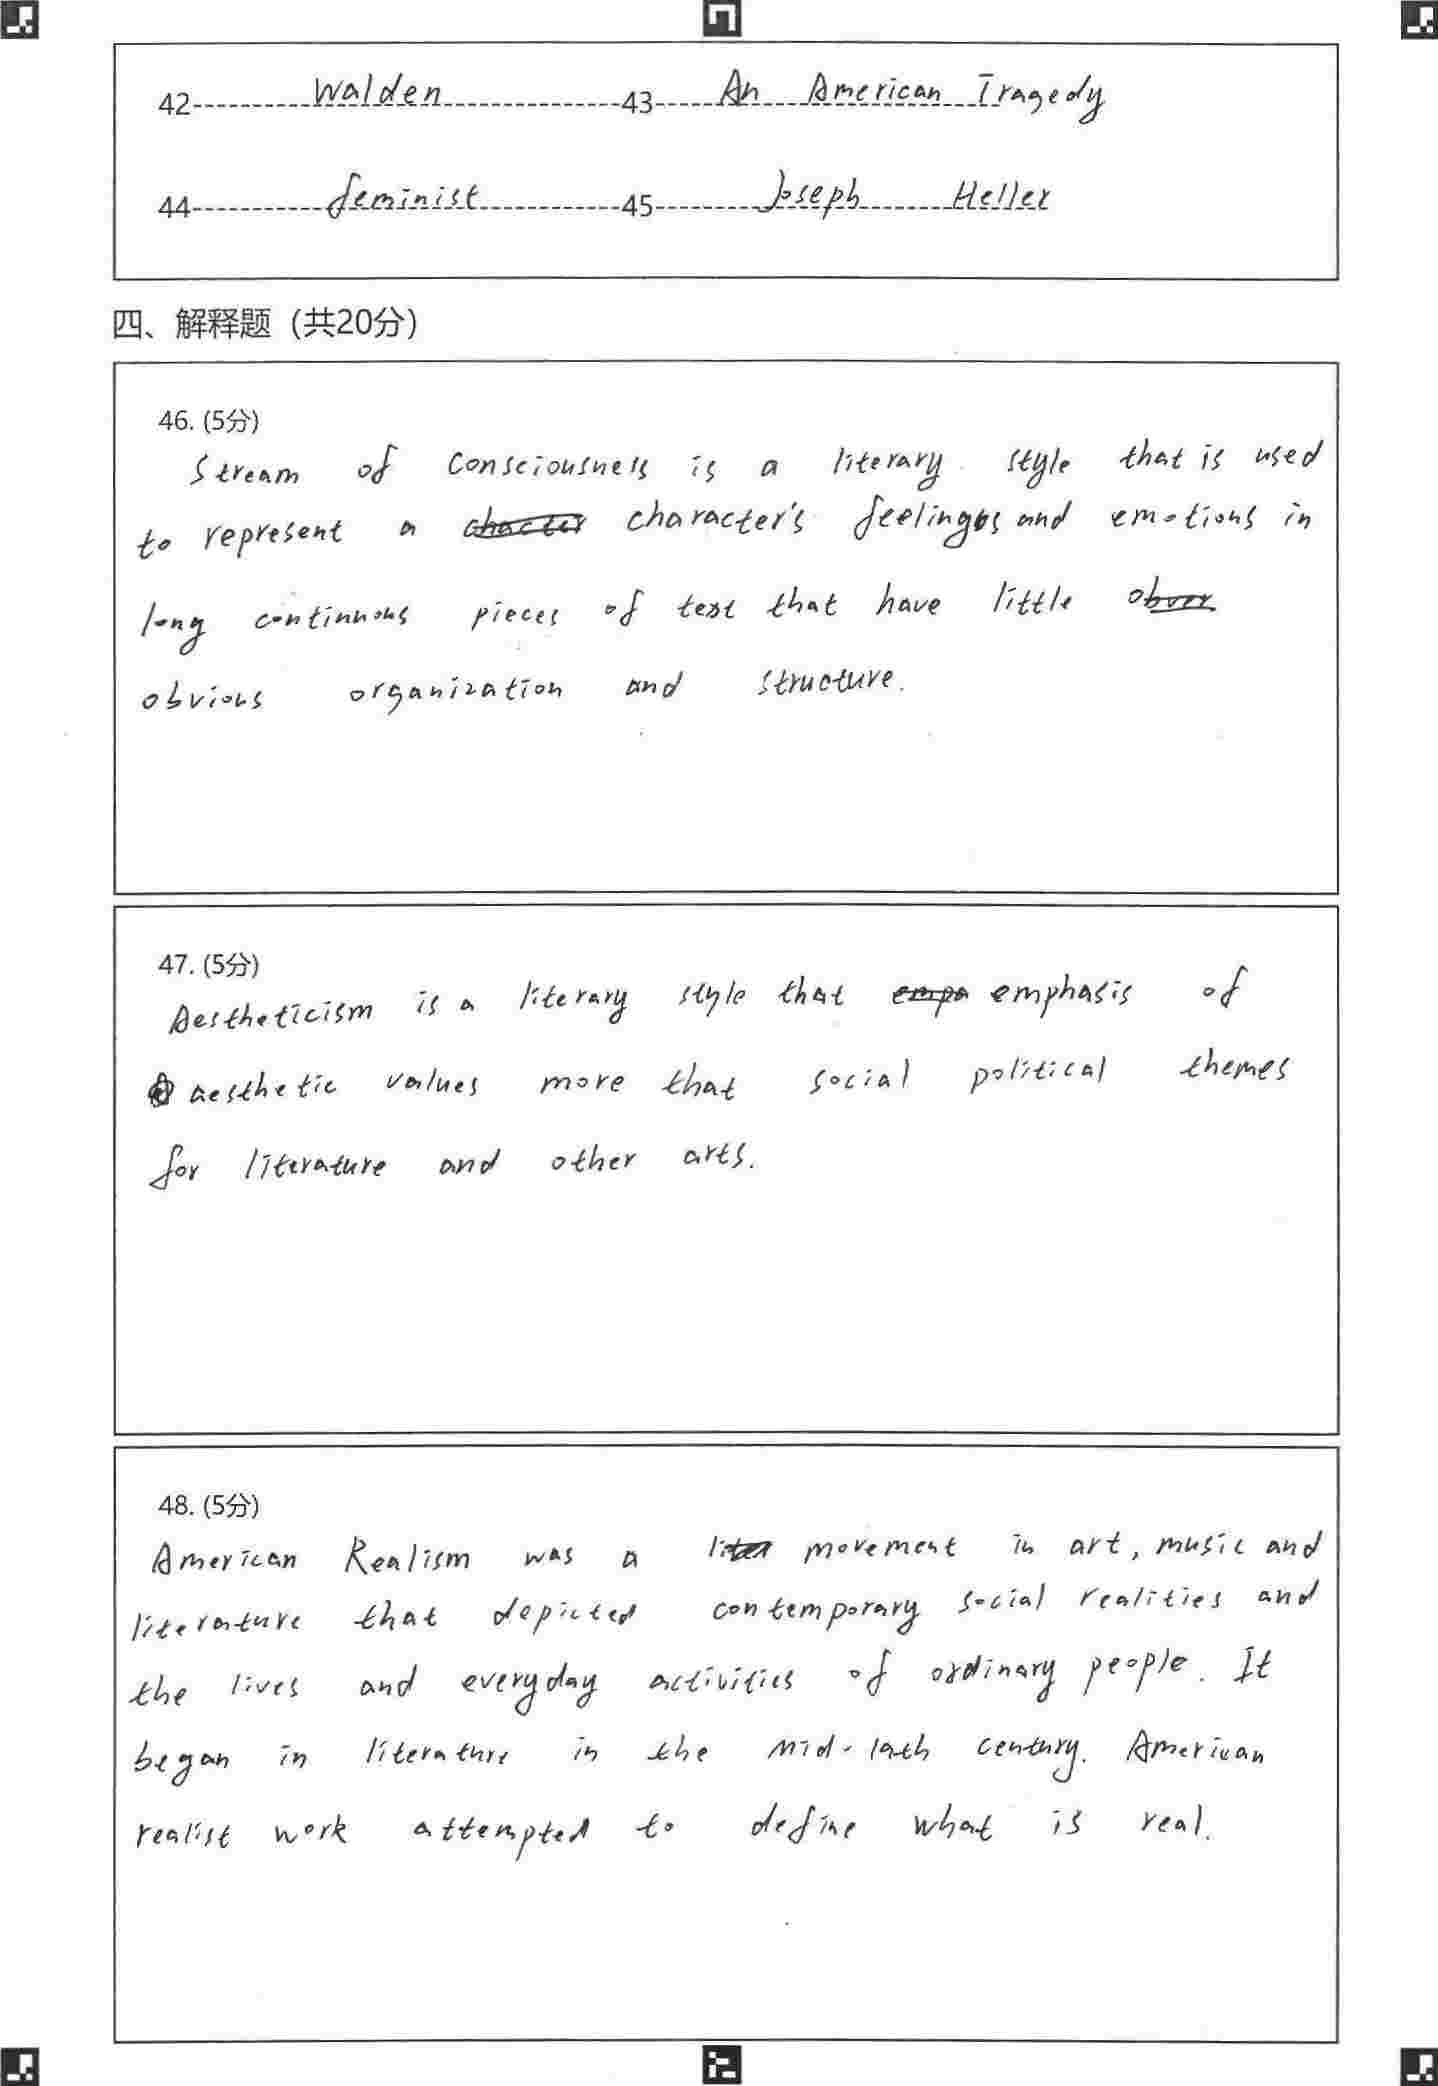 42 Walden 43 An American Tragedy
44 feminist 45 Joseph Heller
四、解释题（共20分）
46. (5分)
Stream of consciousness is a literary style that is used
to represent a character's feelings and emotions in
long continuous pieces of text that have little
obvious organization and structure.
47. (5分)
Aestheticism is a literary style that emphasis of
aesthetic values more that social political themes
for literature and other arts.
48. (5分)
American Realism was a movement in art, music and
literature that depicted contemporary social realities and
the lives and everyday activities of ordinary people. It
began in literature in the mid-19th century. American
realist work attempted to define what is real.